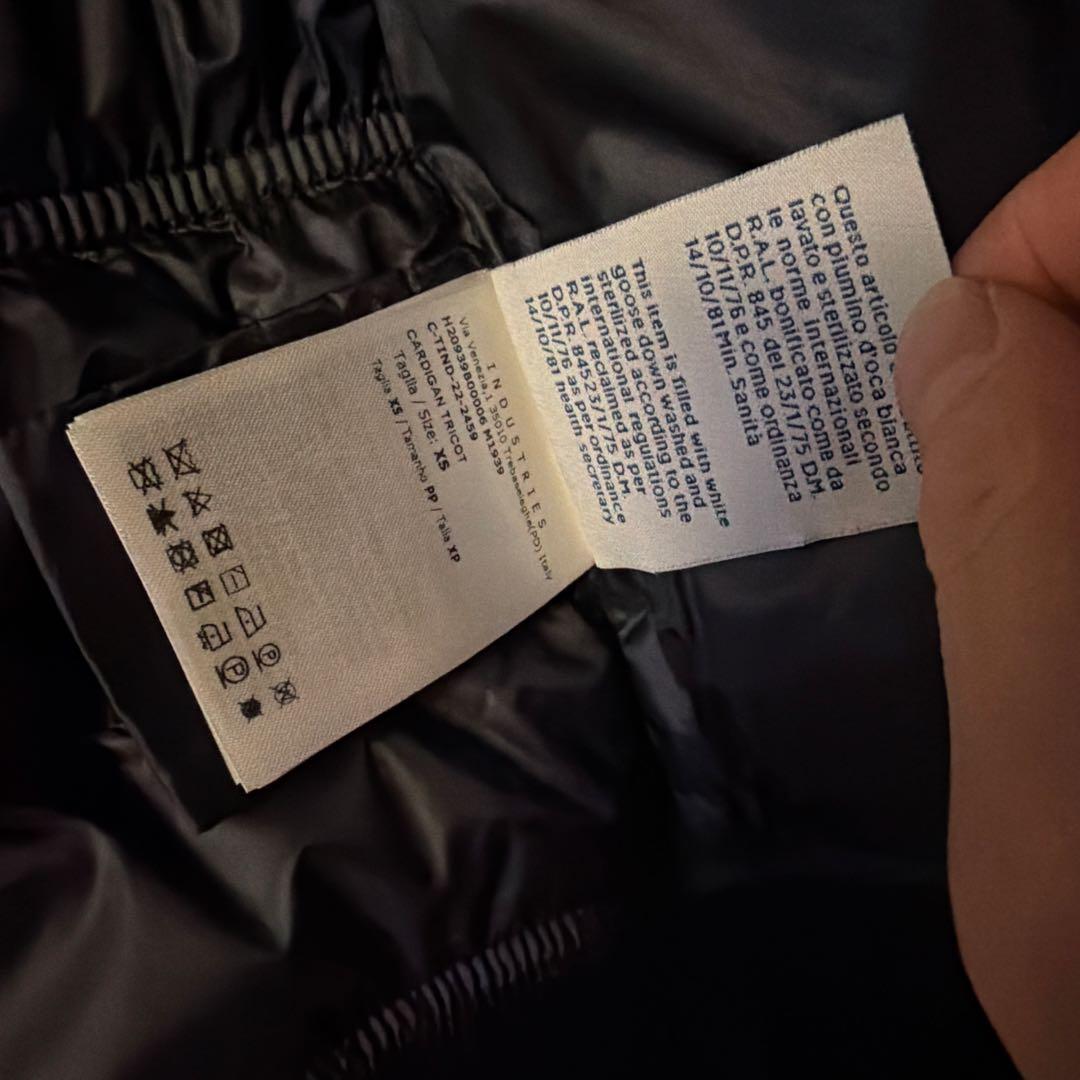 Questo articolo
con piumino d'oca bianca
lavato e sterilizzato secondo
le norme internazionali
R.A.L. bonificato come da
D.P.R. 845 del 23/1/75 D.M.
10/11/76 e come ordinanza
14/10/81 Min. Sanità
This item is filled with white
goose down washed and
sterilized according to the
international regulations
R.A.L. reclaimed as per
D.P.R. 84523/1/75 D.M.
10/11/76 as per ordinance
14/10/81 hearth secretary
INDUSTRIES
Via Venezia,1 35010 Trebaseleghe(PD) Italy
H20939B00006 M1939
C-TIND-22-2459
CARDIGAN TRICOT
Taglia / Size: XS
Taglia XS / Tamanho PP / Talla XP